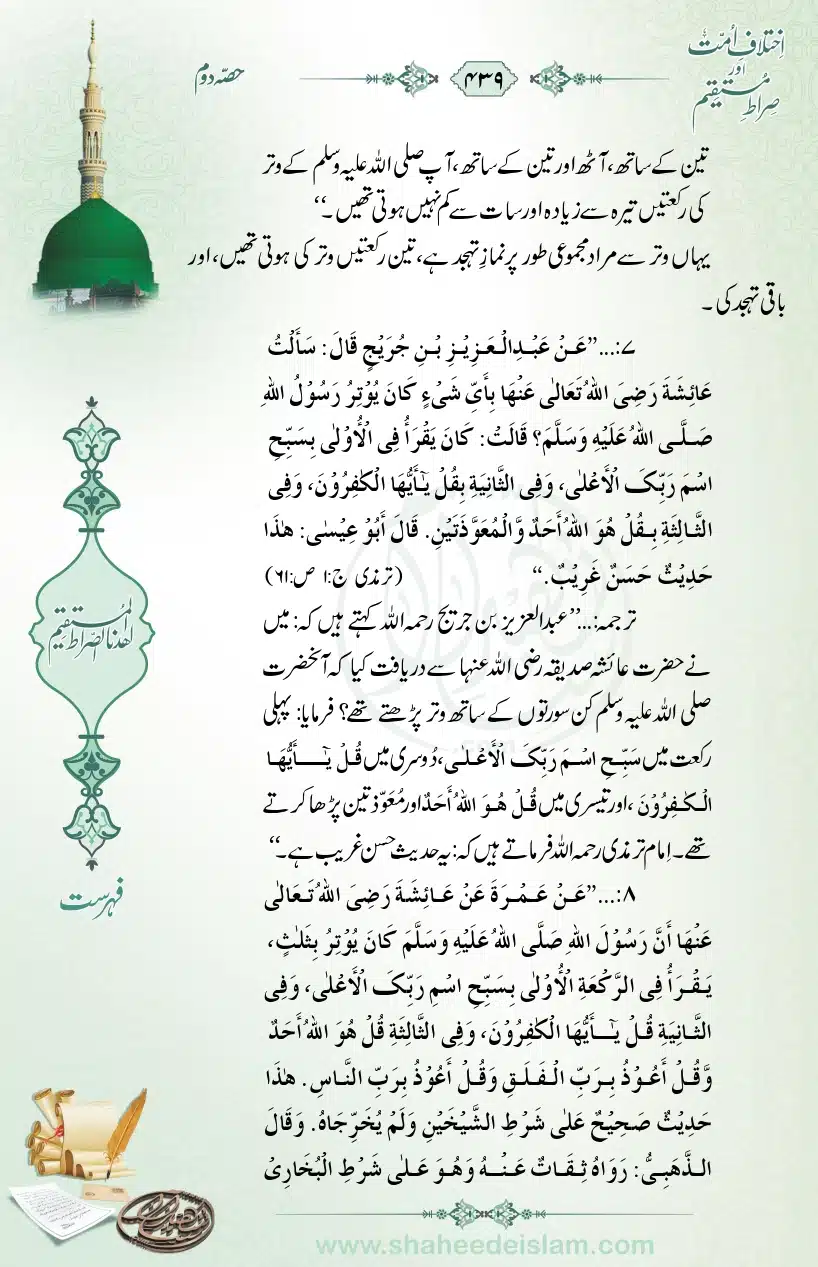 اِختلافِ اُمّت
اور
صِراطِ مُستقِیم
۴۳۹
حصّہ دوم
تین کے ساتھ، آٹھ اور تین کے ساتھ، آپ صلی اللہ علیہ وسلم کے وتر
کی رکعتیں تیرہ سے زیادہ اور سات سے کم نہیں ہوتی تھیں۔“
یہاں وتر سے مراد مجموعی طور پر نمازِ تہجد ہے، تین رکعتیں وتر کی ہوتی تھیں، اور
باقی تہجد کی۔
۷:...”عَنْ عَبْدِالْعَزِیْزِ بْنِ جُرَیْجٍ قَالَ: سَأَلْتُ
عَائِشَةَ رَضِیَ اللهُ تَعَالٰی عَنْهَا بِأَیِّ شَیْءٍ کَانَ یُوْتِرُ رَسُوْلُ اللهِ
صَلَّی اللهُ عَلَیْهِ وَسَلَّمَ؟ قَالَتْ: کَانَ یَقْرَأُ فِی الْأُوْلٰی بِسَبِّحِ
اسْمَ رَبِّکَ الْأَعْلٰی، وَفِی الثَّانِیَةِ بِقُلْ یٰٓأَیُّهَا الْکٰفِرُوْنَ، وَفِی
الثَّالِثَةِ بِقُلْ هُوَ اللهُ أَحَدٌ وَّالْمُعَوَّذَتَیْنِ. قَالَ أَبُوْ عِیْسٰی: هٰذَا
حَدِیْثٌ حَسَنٌ غَرِیْبٌ.“ (ترمذی ج:۱ ص:۶۱)
ترجمہ:...”عبدالعزیز بن جریج رحمہ اللہ کہتے ہیں کہ: میں
نے حضرت عائشہ صدیقہ رضی اللہ عنہا سے دریافت کیا کہ آنحضرت
صلی اللہ علیہ وسلم کن سورتوں کے ساتھ وتر پڑھتے تھے؟ فرمایا: پہلی
رکعت میں سَبِّحِ اسْمَ رَبِّکَ الْأَعْلٰی، دُوسری میں قُلْ یٰٓأَیُّهَا
الْکٰفِرُوْنَ، اور تیسری میں قُلْ هُوَ اللهُ أَحَدٌ اور مُعَوّذتین پڑھا کرتے
تھے۔ اِمام ترمذی رحمہ اللہ فرماتے ہیں کہ: یہ حدیث حسن غریب ہے۔“
۸:...”عَنْ عَمْرَةَ عَنْ عَائِشَةَ رَضِیَ اللهُ تَعَالٰی
عَنْهَا أَنَّ رَسُوْلَ اللهِ صَلَّی اللهُ عَلَیْهِ وَسَلَّمَ کَانَ یُوْتِرُ بِثَلٰثٍ،
یَقْرَأُ فِی الرَّکْعَةِ الْأُوْلٰی بِسَبِّحِ اسْمِ رَبِّکَ الْأَعْلٰی، وَفِی
الثَّانِیَةِ قُلْ یٰٓأَیُّهَا الْکٰفِرُوْنَ، وَفِی الثَّالِثَةِ قُلْ هُوَ اللهُ أَحَدٌ
وَّقُلْ أَعُوْذُ بِرَبِّ الْفَلَقِ وَقُلْ أَعُوْذُ بِرَبِّ النَّاسِ. هٰذَا
حَدِیْثٌ صَحِیْحٌ عَلٰی شَرْطِ الشَّیْخَیْنِ وَلَمْ یُخَرِّجَاهُ. وَقَالَ
الذَّهَبِیُّ: رَوَاهُ ثِقَاتٌ عَنْهُ وَهُوَ عَلٰی شَرْطِ الْبُخَارِیْ
اِهْدِنَا الصِّرَاطَ الْمُسْتَقِیْمَ
فہرست
www.shaheedeislam.com